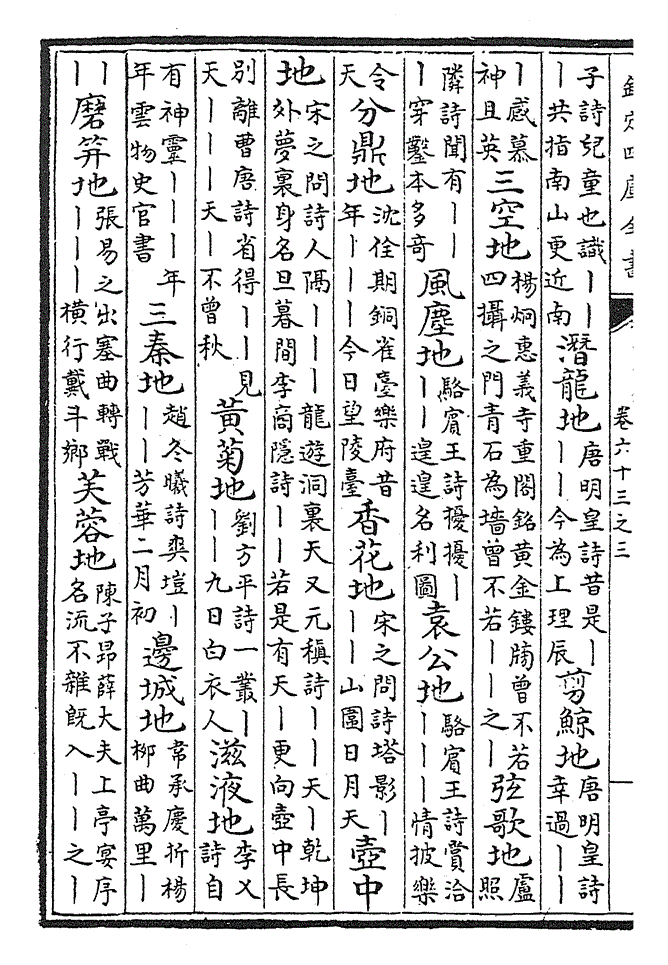 欽定四庫全書 卷六十三之三
子詩兒童也識丨丨丨共指南山更近南潛龍地唐明皇詩昔是丨丨丨今為上理辰剪鯨地唐明皇詩幸過丨丨
丨感慕神且英三空地楊炯惠義寺重閣銘黄金鏤牓曾不若四攝之門青石為墻曾不若丨丨之丨弦歌地盧照
隣詩聞有丨丨丨穿鑿本多奇風塵地駱賓王詩擾擾丨丨丨遑遑名利圖袁公地駱賓王詩賞洽丨丨丨情披樂
令天分鼎地沈佺期銅雀臺樂府昔年丨丨丨今日望陵臺香花地宋之問詩塔影丨丨丨山圍日月天壺中
地宋之問詩人隔丨丨丨龍遊洞裏天又元稹詩丨丨天丨乾坤外夢裏身名旦暮間李商隱詩丨丨若是有天丨更向壺中長
别離曹唐詩省得丨丨見天丨丨丨天丨不曾秋黄菊地劉方平詩一叢丨丨丨九日白衣人滋液地李乂詩自
有神靈丨丨丨年年雲物史官書三秦地趙冬曦詩爽塏丨丨丨芳華二月初邊城地韋承慶折楊柳曲萬里丨
丨丨磨笄地張易之出塞曲轉戰丨丨丨橫行戴斗鄉芙蓉地陳子昻薛大夫上亭宴序名流不雜旣入丨丨之丨